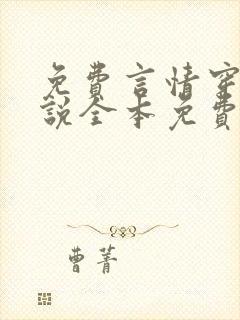 免費言情穿
說全本免費
曹菁